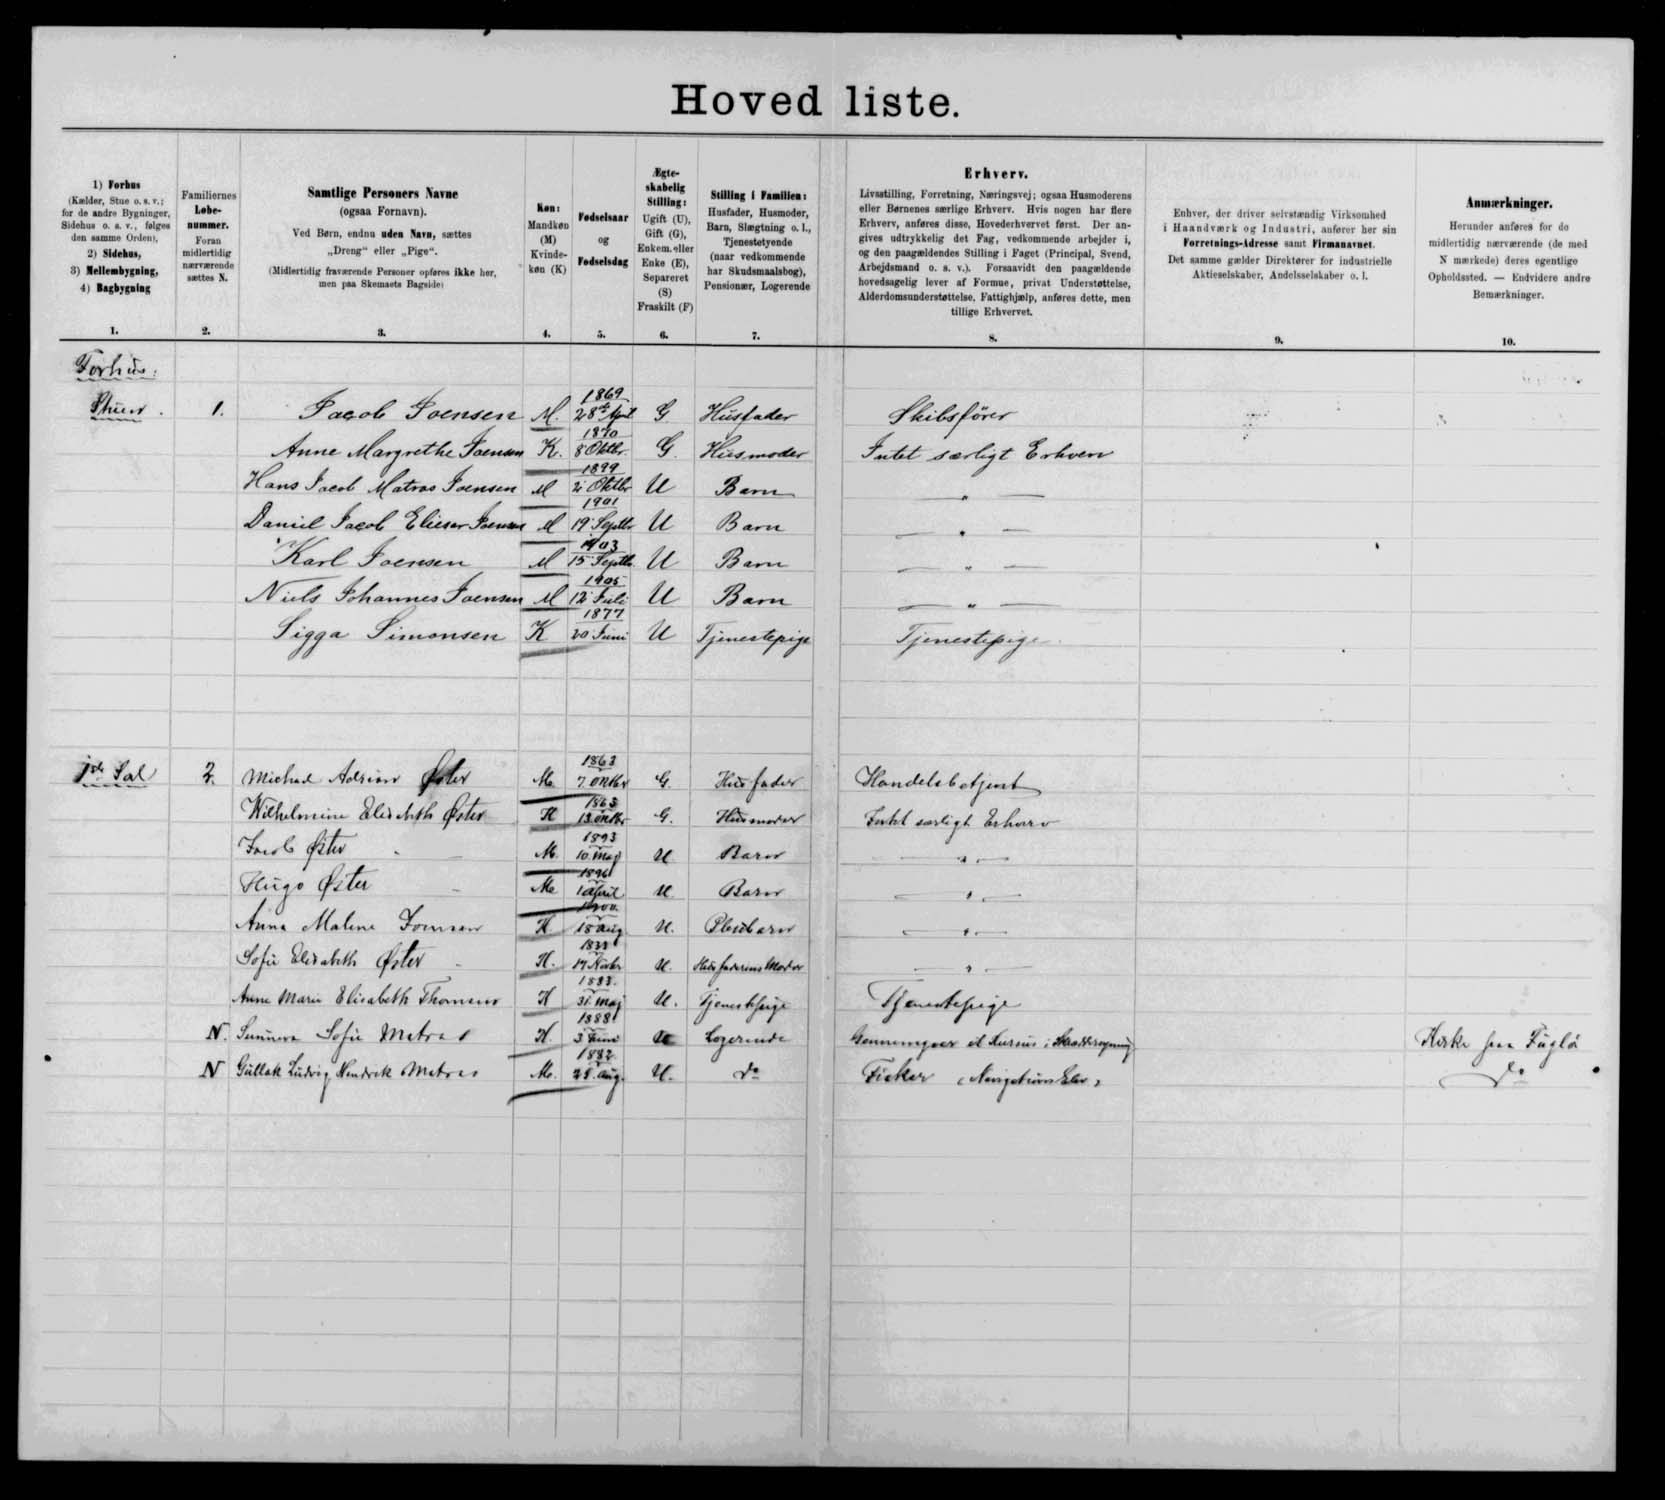 Hovedliste.
1) Forhus
(Kælder, Stue o. s. v.;
for de andre Bygninger,
Sidehus o. s. v., følges
den samme Orden),
2) Sidehus,
3) Mellembygning,
4) Bagbygning
1.
Familiernes
Løbe-
nummer.
Foran
midlertidig
nærværende
sættes N.
2.
Samtlige Personers Navne
(ogsaa Fornavn).
Ved Børn, endnu uden Navn, sættes
„Dreng“ eller „Pige“.
(Midlertidig fraværende Personer opføres ikke her,
men paa Skemaets Bagside)
3.
Køn:
Mandkøn
(M)
Kvinde-
køn (K)
4.
Fødselsaar
og
Fødselsdag
5.
Ægte-
skabelig
Stilling:
Ugift (U),
Gift (G),
Enkem. eller
Enke (E),
Separeret
(S)
Fraskilt (F)
6.
Stilling i Familien:
Husfader, Husmoder,
Barn, Slægtning o. l.,
Tjenestetyende
(naar vedkommende
har Skudsmaalsbog),
Pensionær, Logerende
7.
Erhverv.
Livsstilling, Forretning, Næringsvej; ogsaa Husmoderens
eller Børnenes særlige Erhverv. Hvis nogen har flere
Erhverv, anføres disse, Hovederhvervet først. Der an-
gives udtrykkelig det Fag, vedkommende arbejder i,
og den paagældendes Stilling i Faget (Principal, Svend,
Arbejdsmand o. s. v.). Forsaavidt den paagældende
hovedsagelig lever af Formue, privat Understøttelse,
Alderdomsunderstøttelse, Fattighjælp, anføres dette, men
tillige Erhvervet.
8.
Enhver, der driver selvstændig Virksomhed
i Haandværk og Industri, anfører her sin
Forretnings-Adresse samt Firmanavnet.
Det samme gælder Direktører for industrielle
Aktieselskaber, Andelsselskaber o. l.
9.
Anmærkninger.
Herunder anføres for de
midlertidig nærværende (de med
N mærkede) deres egentlige
Opholdssted. — Endvidere andre
Bemærkninger.
10.
Forhus:
Stuen. 1. Jacob Joensen M. 1869 28de April G Husfader Skibsfører
Anne Margrethe Joensen K. 1870 8 Oktbr. G. Husmoder Intet særligt Erhverv
Hans Jacob Matras Joensen M 1899 2 Oktbr U Barn — " —
Daniel Jacob Elieser Joensen M 1901 19 Septbr U Barn — " —
Karl Joensen M 1903 15 Septbr. U Barn — " —
Niels Johannes Joensen M 1905 12 Juli U Barn — " —
Sigga Simonsen K 1877 20 Juni U Tjenestepige Tjenestepige
1ste Sal 2. Michael Adrian Øster M. 1863 7. Oktbr G. Husfader Handelsbetjent
Wilhelmine Elisabeth Øster K 1863 13 Oktbr G. Husmoder Intet særligt Erhverv
Jacob Øster M. 1893 10. Maj U. Barn — " —
Hugo Øster M. 1896 1 April U. Barn — " —
Anna Malene Joensen K 1900 18 Aug. U. Pleiebarn — " —
Sofie Elisabeth Øster K. 17 Novbr U. Husfaderens Moder — " —
Anne Marie Elisabeth Thomsen K 1883. 31 Maj U. Tjenestepige Tjenestepige
N. Sunneva Sofie Matras K. 1888 3 Juni U Logerende Gennemgaar et Kursus i Skolten Kirke paa Fuglø
N Gullak Ludvig Hendrik Matras M. 1882 28. Aug. U. do Fisker (Navigations Elev) do